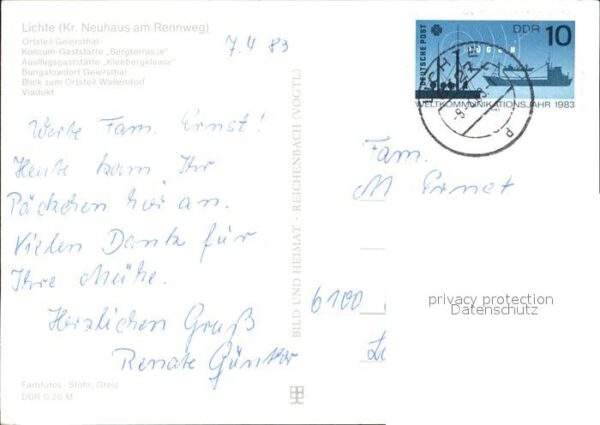 Lichte (Kr. Neuhaus am Rennweg)
Ortsteil Geiersthal
Konsum-Gaststätte „Bergterrasse"
Ausflugsgaststätte „Kleebergklause"
Bungalowdorf Geiersthal
Blick zum Ortsteil Wallendorf
Viadukt
7.4 83
Werte Fam. Ernst!
Heute kam Ihr
Päckchen hier an.
Vielen Dank für
Ihre Mühe.
Herzlichen Gruß
Renate Günther
Farbfotos: Stöhr, Greiz
DDR 0,20 M
BILD UND HEIMAT · REICHENBACH (VOGTL)
DEUTSCHE POST
DDR 10
WELTKOMMUNIKATIONSJAHR 1983
Fam.
M Ernst
6100
privacy protection
Datenschutz